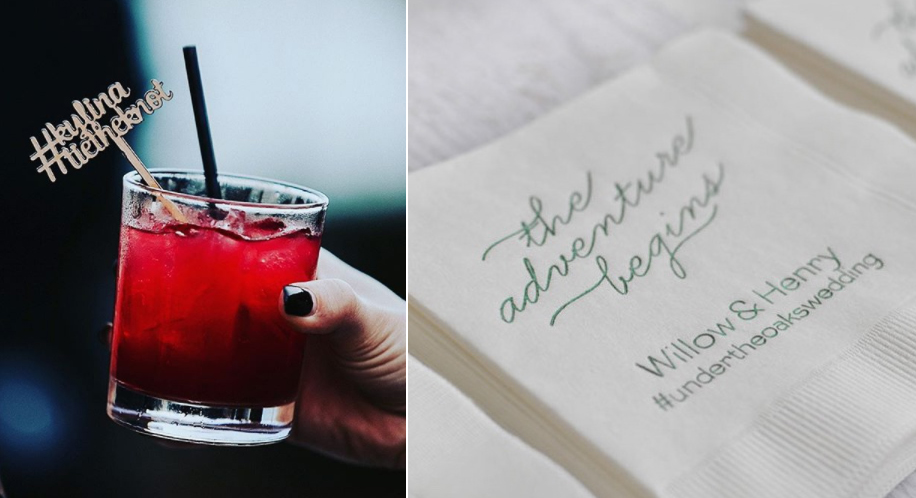 #kylina
#tietheknot
the
adventure
begins
Willow & Henry
#undertheoakswedding